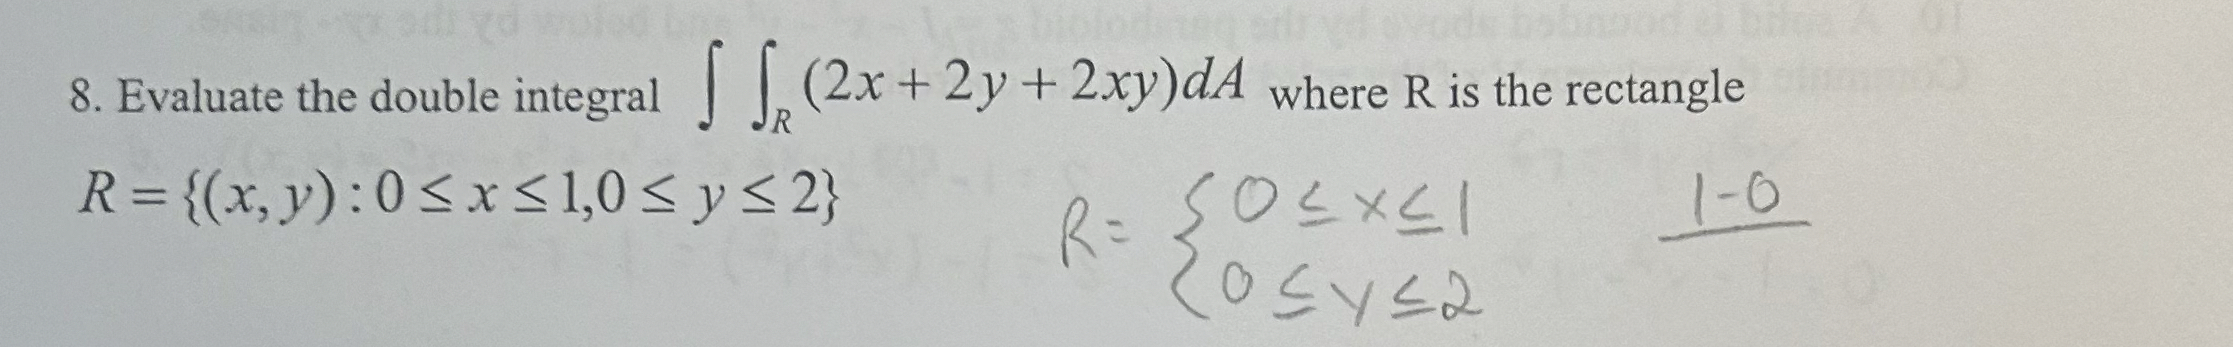 8. Evaluate the double integral ∫∫_R (2x + 2y + 2xy)dA where R is the rectangle
R = {(x, y) : 0 ≤ x ≤ 1,0 ≤ y ≤ 2}
R = { 0 ≤ x ≤ 1
0 ≤ y ≤ 2
1-0